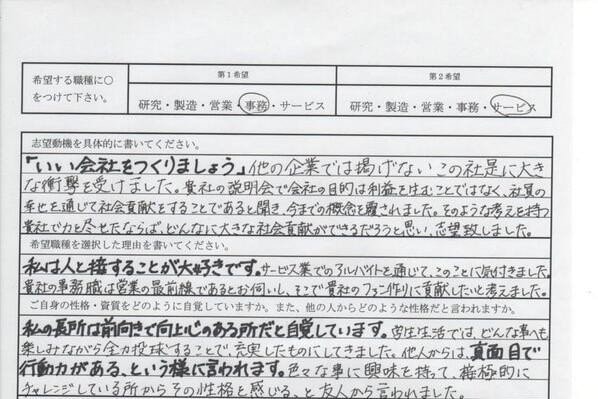 希望する職種に○
をつけて下さい。
第1希望
第2希望
研究・製造・営業・事務・サービス
研究・製造・営業・事務・サービス
志望動機を具体的に書いてください。
「いい会社をつくりましょう」他の企業では掲げない この社是に大き
な衝撃を受けました。貴社の説明会で会社の目的は利益を生むことではなく、社員の
幸せを通じて社会貢献をすることであると聞き、今までの概念を覆されました。そのような考えを持つ
貴社で力を尽せたならば、どんなに大きな社会貢献ができるだろうと思い、志望致しました。
希望職種を選択した理由を書いてください。
私は人と接することが大好きです。サービス業でのアルバイトを通じて、このことに気付きました。
貴社の事務職は営業の最前線であるとお伺いし、そこで貴社のファン作りに貢献したいと考えました。
ご自身の性格・資質をどのように自覚していますか。また、他の人からどのような性格だと言われますか。
私の長所は前向きで向上心のある所だと自覚しています。学生生活では、どんな事へも
楽しみながら全力投球することで、充実したものにしてきました。他人からは、真面目で
行動力がある、という様に言われます。色々な事に興味を持って、積極的に
チャレンジしている所からその性格を感じる、と友人から言われました。